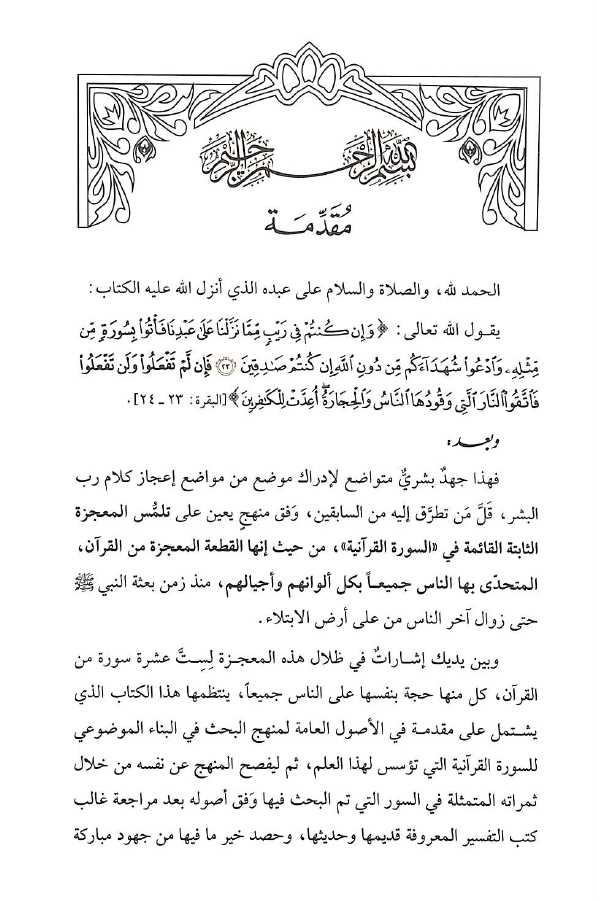 بسم الله الرحمن الرحيم
مُقَدِّمَة
الحمد لله، والصلاة والسلام على عبده الذي أنزل الله عليه الكتاب:
يقول الله تعالى: ﴿وَإِن كُنتُمْ فِى رَيْبٍ مِّمَّا نَزَّلْنَا عَلَىٰ عَبْدِنَا فَأْتُوا۟ بِسُورَةٍ مِّن
مِّثْلِهِۦ وَٱدْعُوا۟ شُهَدَآءَكُم مِّن دُونِ ٱللَّهِ إِن كُنتُمْ صَـٰدِقِينَ ٢٣ فَإِن لَّمْ تَفْعَلُوا۟ وَلَن تَفْعَلُوا۟
فَٱتَّقُوا۟ ٱلنَّارَ ٱلَّتِى وَقُودُهَا ٱلنَّاسُ وَٱلْحِجَارَةُ ۖ أُعِدَّتْ لِلْكَـٰفِرِينَ﴾ [البقرة: ٢٣ ـ ٢٤].
وبعد:
فهذا جهدٌ بشريٌّ متواضع لإدراك موضع من مواضع إعجاز كلام رب
البشر، قَلَّ مَن تطرَّق إليه من السابقين، وَفق منهجٍ يعين على تلمُّس المعجزة
الثابتة القائمة في «السورة القرآنية»، من حيث إنها القطعة المعجزة من القرآن،
المتحدّى بها الناس جميعاً بكل ألوانهم وأجيالهم، منذ زمن بعثة النبي ﷺ
حتى زوال آخر الناس من على أرض الابتلاء.
وبين يديك إشاراتٌ في ظلال هذه المعجزة لِستَّ عشرة سورة من
القرآن، كل منها حجة بنفسها على الناس جميعاً، ينتظمها هذا الكتاب الذي
يشتمل على مقدمة في الأصول العامة لمنهج البحث في البناء الموضوعي
للسورة القرآنية التي تؤسس لهذا العلم، ثم ليفصح المنهج عن نفسه من خلال
ثمراته المتمثلة في السور التي تم البحث فيها وَفق أصوله بعد مراجعة غالب
كتب التفسير المعروفة قديمها وحديثها، وحصد خير ما فيها من جهود مباركة